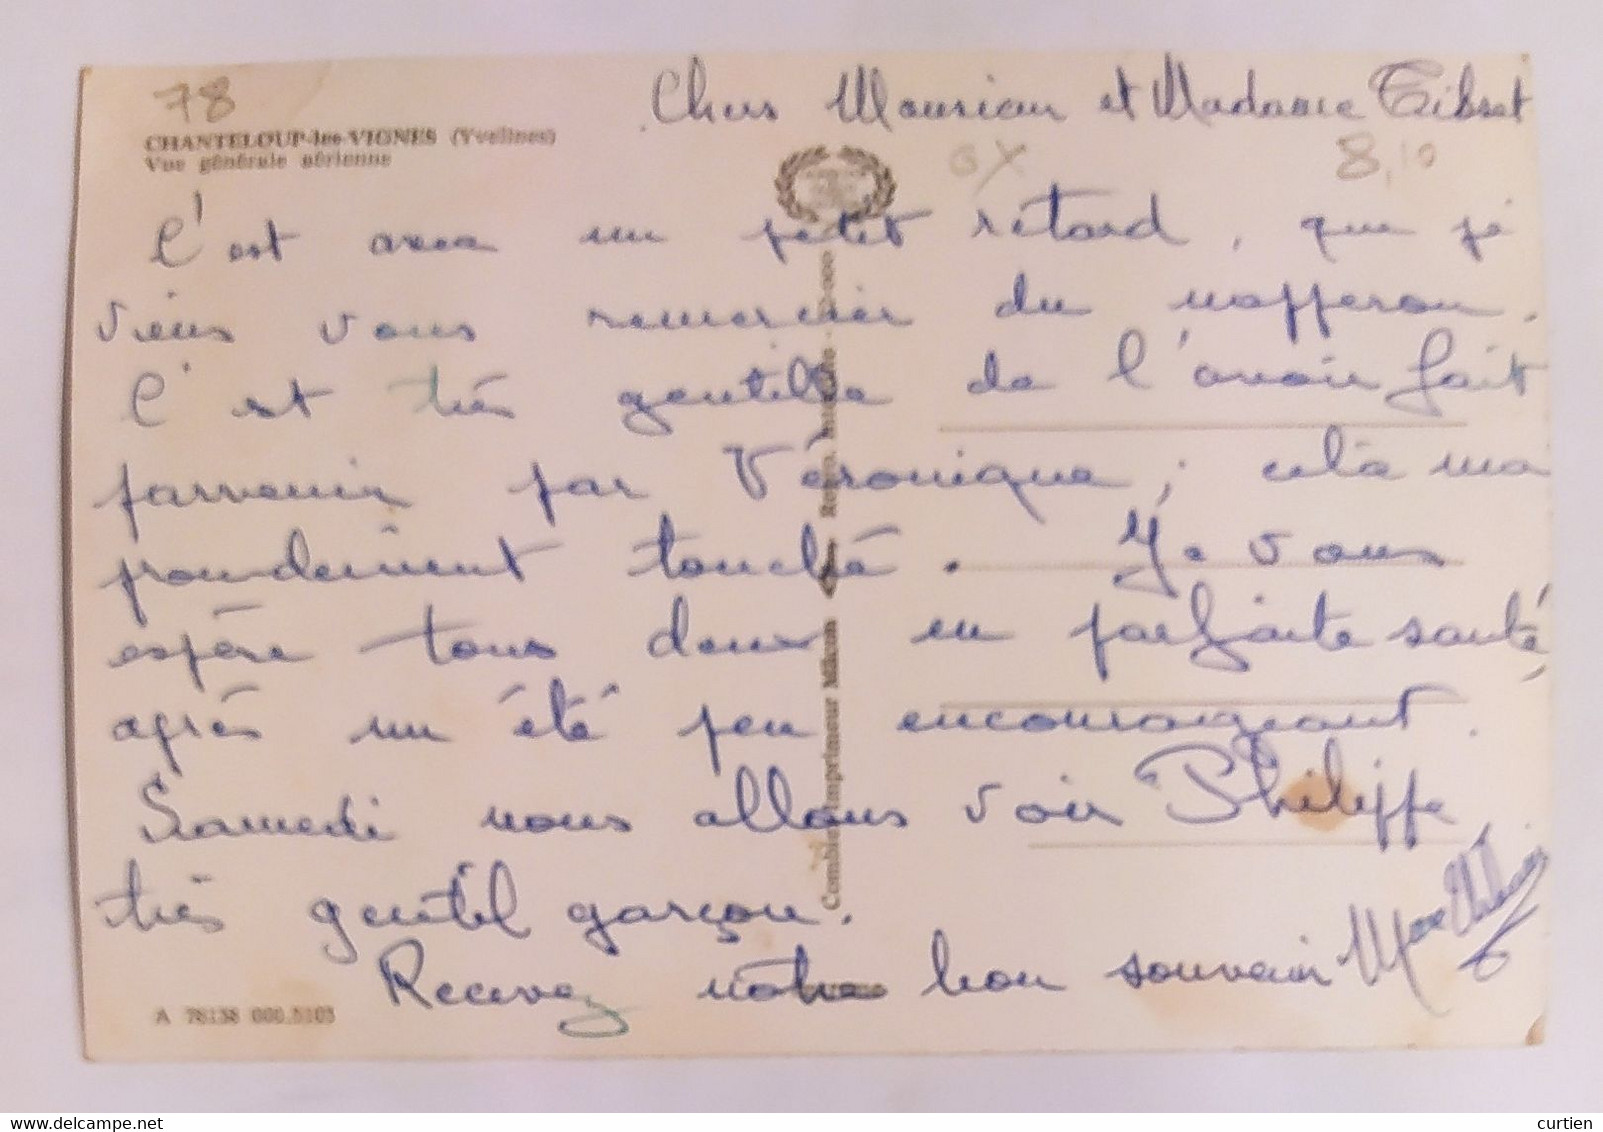 78
Chers Monsieur et Madame
CHANTELOUP-les-VIGNES (Yvelines)
Vue générale aérienne
GX
8,10
C'est avec un petit retard, que je
viens vous remercier du napperon.
C'est très gentille de l'avoir fait
parvenir par Véronique, cela ma
proundement touché. Je vous
espère tous deux en parfaite santé,
après un été peu encourageant.
Samedi nous allons voir Philippe
très gentil garçon.
Recevez notre bon souvenir
A 78138 000.5105
Combier Imprimeur Mâcon
delcampe.net
curtien